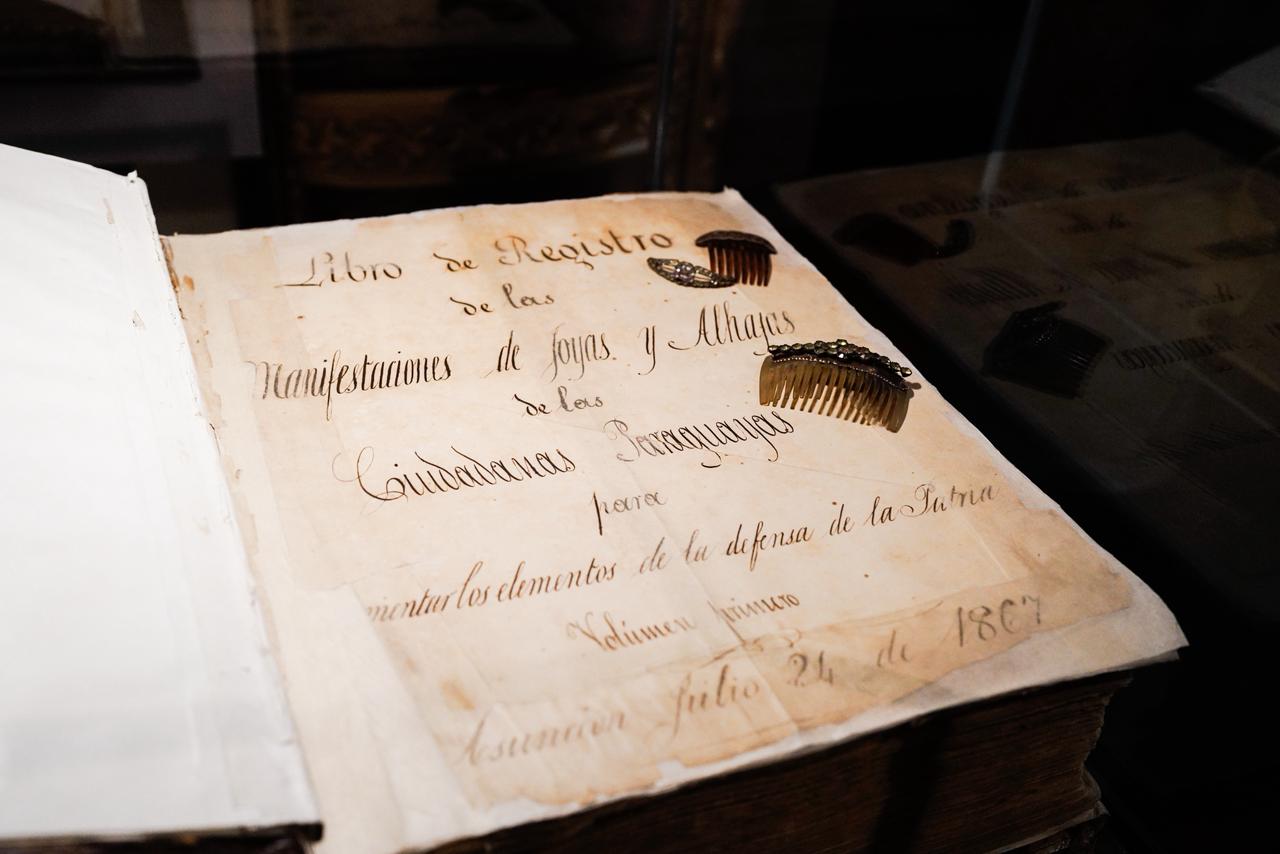 Libro de Registro
de las
Manifestaciones de Joyas. y Alhajas
de las
Ciudadanas Paraguayas
para
mentar los elementos de la defensa de la Patria
Volúmen primero
Asunción Julio 24 de 1867